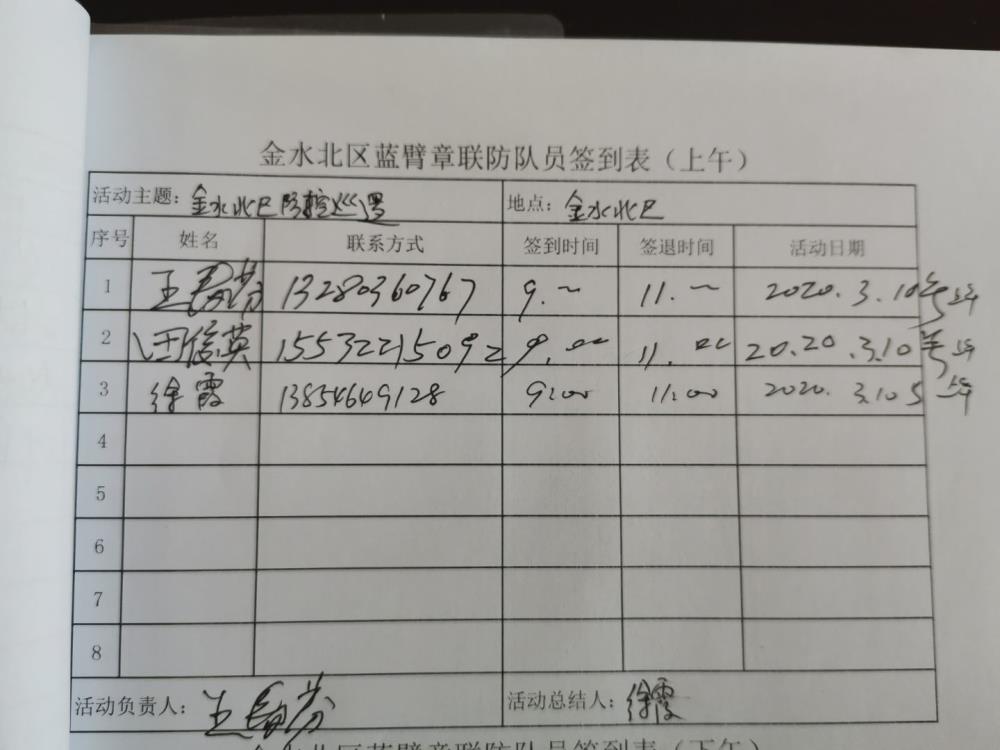 金水北区蓝臂章联防队员签到表（上午）
活动主题：金水北区防控巡逻 地点：金水北区
序号 姓名 联系方式 签到时间 签退时间 活动日期
1 王 芬 13280360767 9.～ 11.～ 2020.3.10号上午
2 田信英 15532215092 9.00 11.00 20.20.3.10号上午
3 徐霞 13854649128 9:00 11:00 2020.3.10号上午
4
5
6
7
8
活动负责人：王 芬 活动总结人：徐霞
金水北区蓝臂章联防队员签到表（下午）